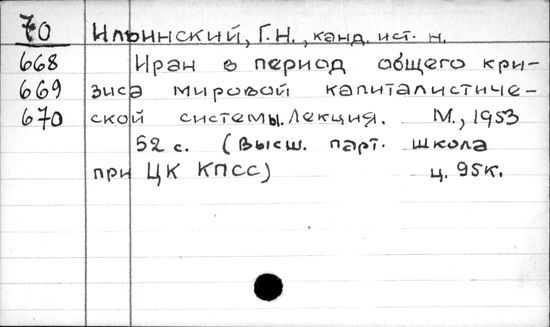 70 Ильинский, Г.Н., канд. ист. н.
668 Иран в период общего кри-
669 зиса мировой капиталистиче-
670 ской системы. Лекция. М., 1953
52 с. (Высш. парт. школа
при ЦК КПСС) ц. 95к.